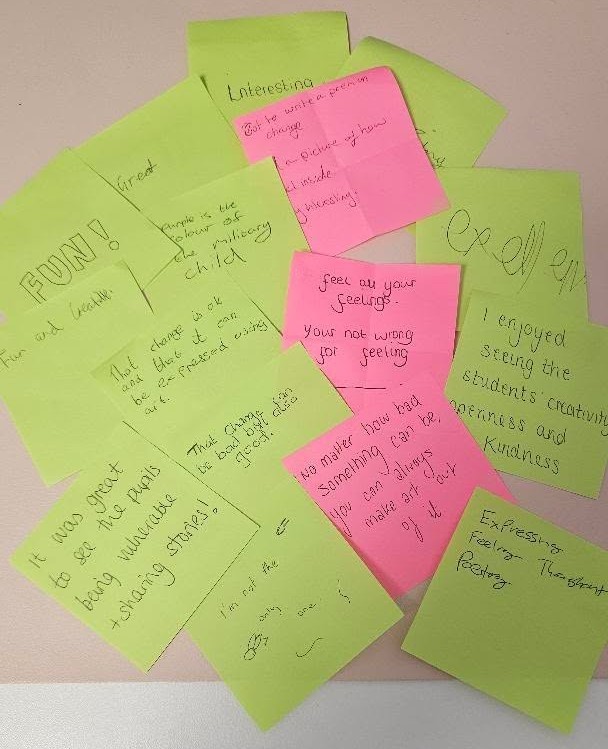 Interesting
to write a poem in
change
a picture of how
inside
interesting.
Great
Purple is the
colour of
the military
child
FUN!
Fun and
excellent
feel all your
feelings.
your not wrong
for feeling
I enjoyed
seeing the
students' creativity
openness and
Kindness
That change is ok
and that it can
be expressed using
art.
That change can
be bad but also
good.
No matter how bad
something can be,
you can always
make art out
of it
It was great
to see the pupils
being vulnerable
+ sharing stories!
I'm not the
only one
Expressing
Feelings Throughout
Poetry